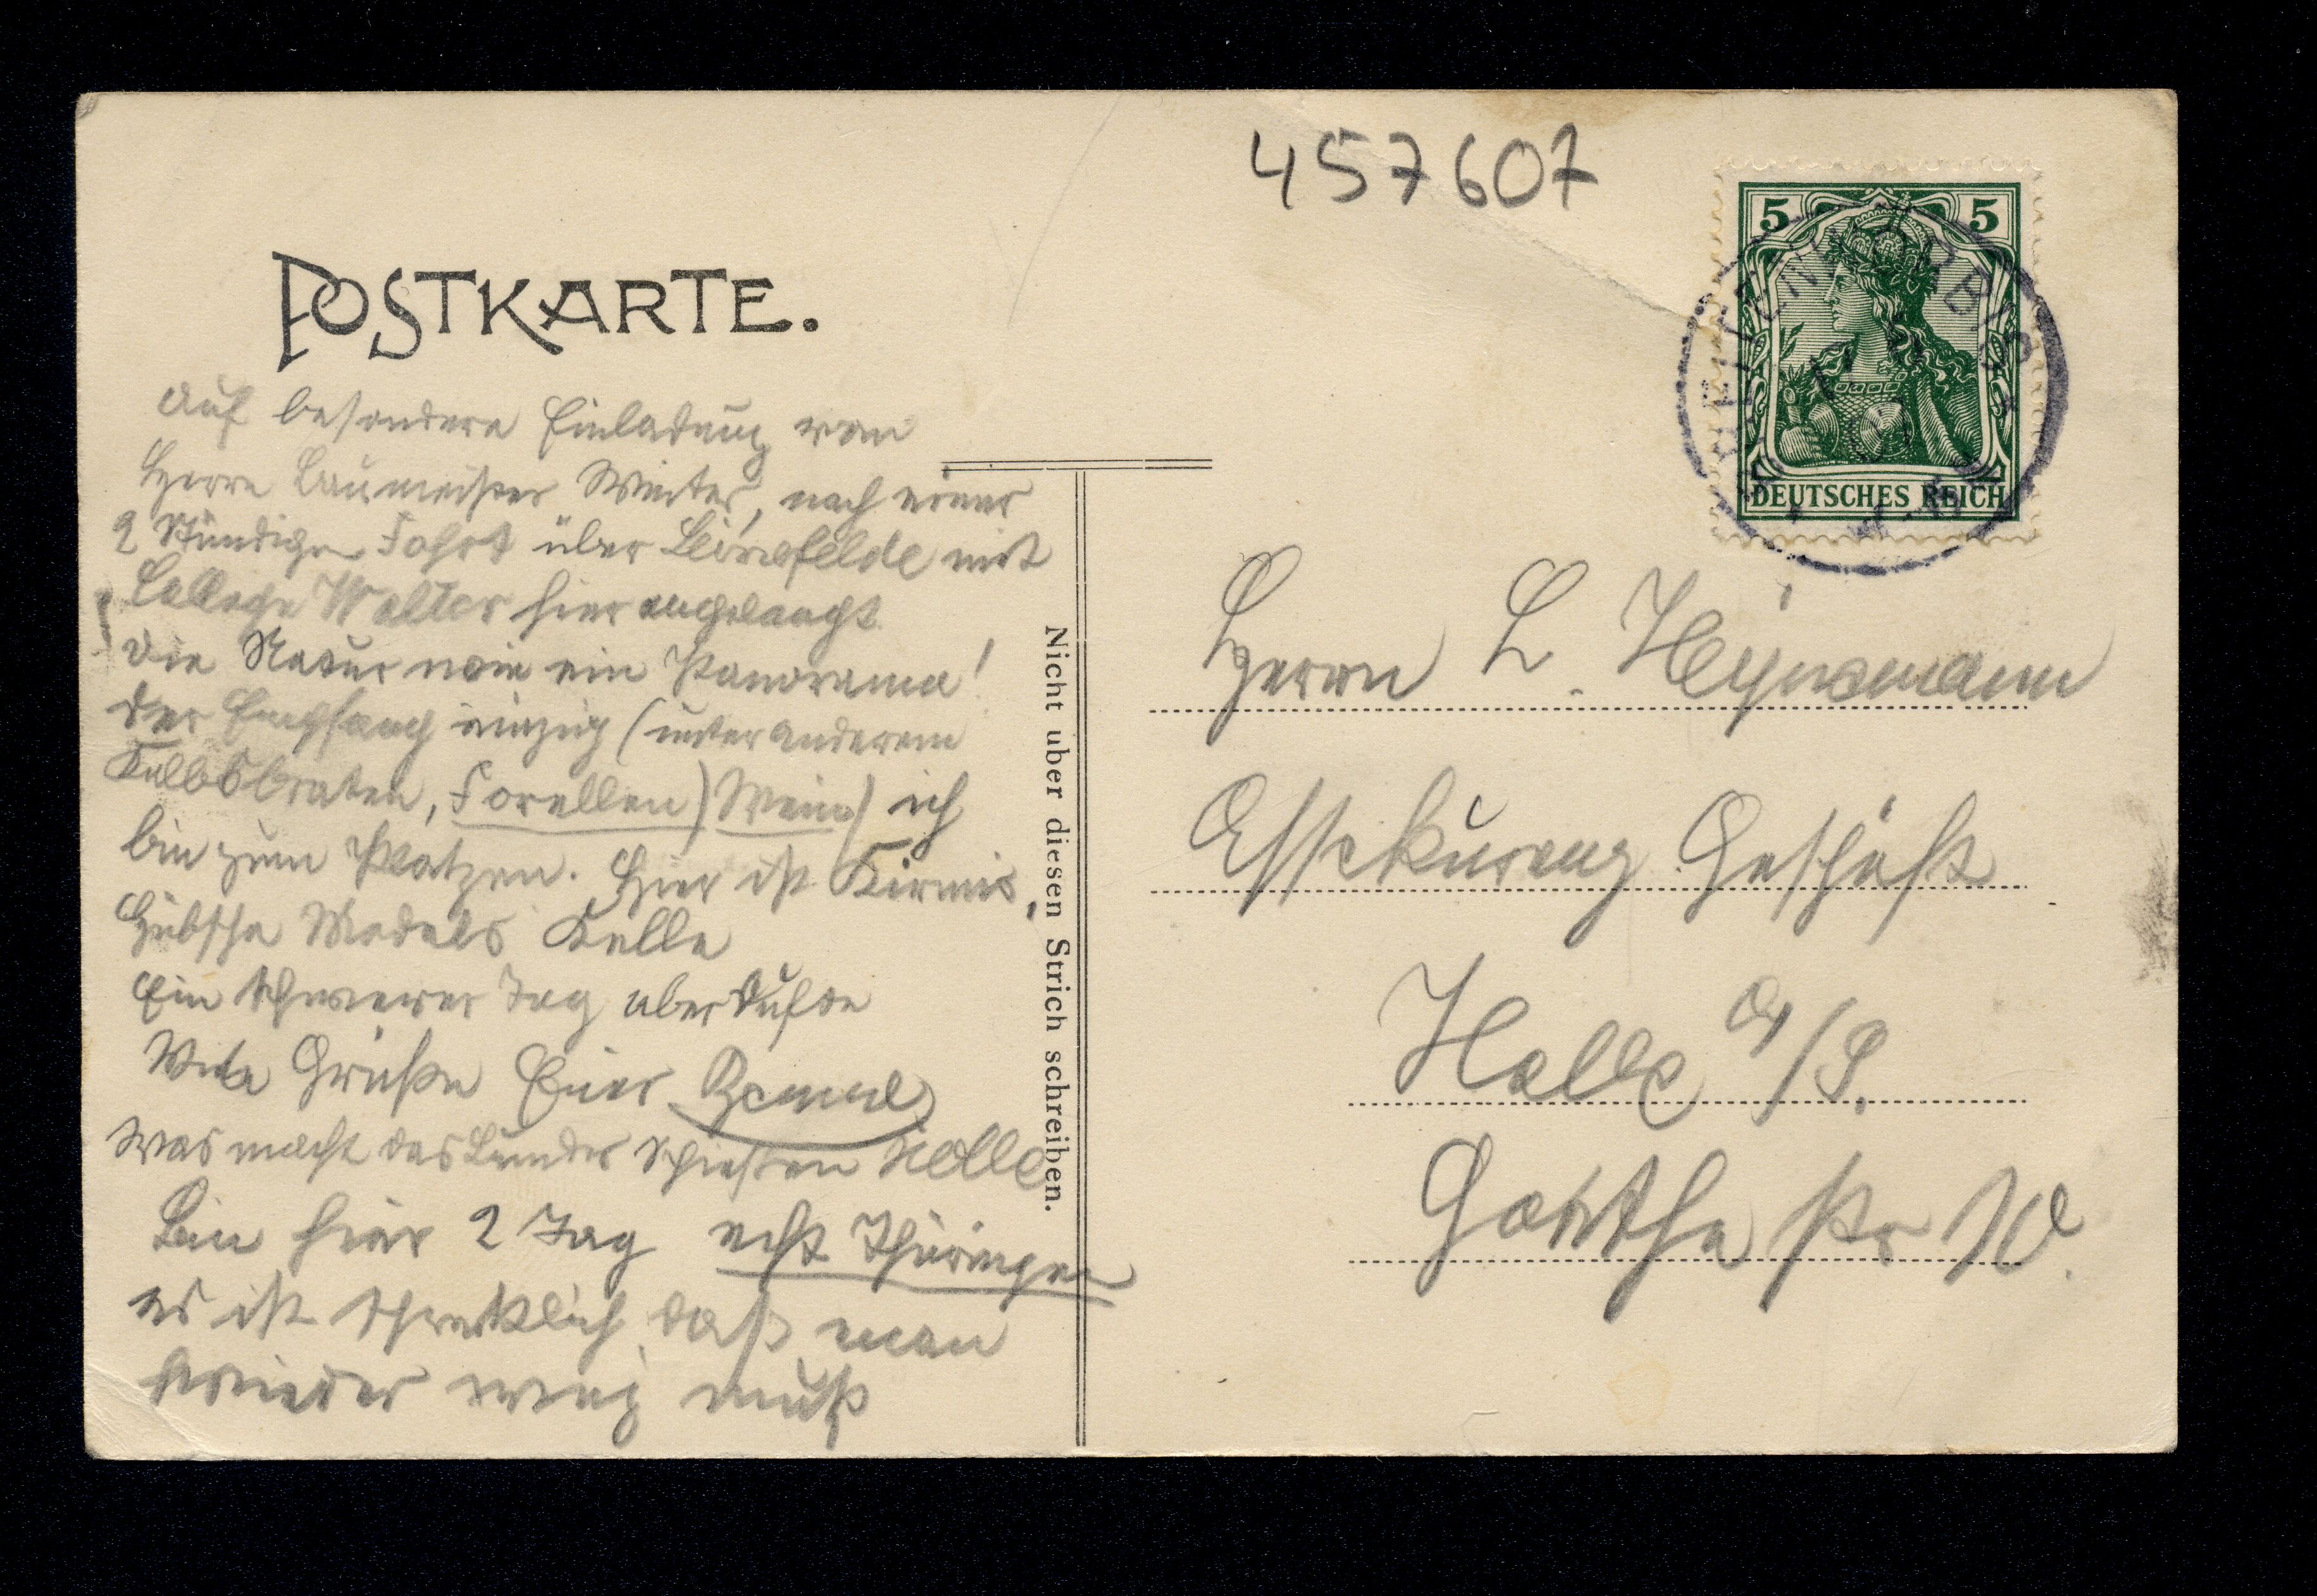 457607
5 5
DEUTSCHES REICH
POSTKARTE.
Auf besondere Einladung von
Herrn Baumeister Winter, nach einer
2 Stündigen Fahrt über Leinefelde mit
College Walter hier angelangt.
Die Natur wie ein Panorama!
Der Empfang einzig (unter anderem
Kalbsbraten, Forellen) Wein) ich
bin zum Platzen. Hier ist Kirmis,
Hübsche Madels
Ein schwerer Tag aber dufte
Grüße Euer
Was macht das Bundes Schießen
Bin hier 2 Tag echt Thüringen
es ist schrecklich daß man
wieder weg muß
Nicht uber diesen Strich schreiben.
Herrn L. Heynemann
Assekuranz Geschäft
Halle a/S.
Goethe str 10.